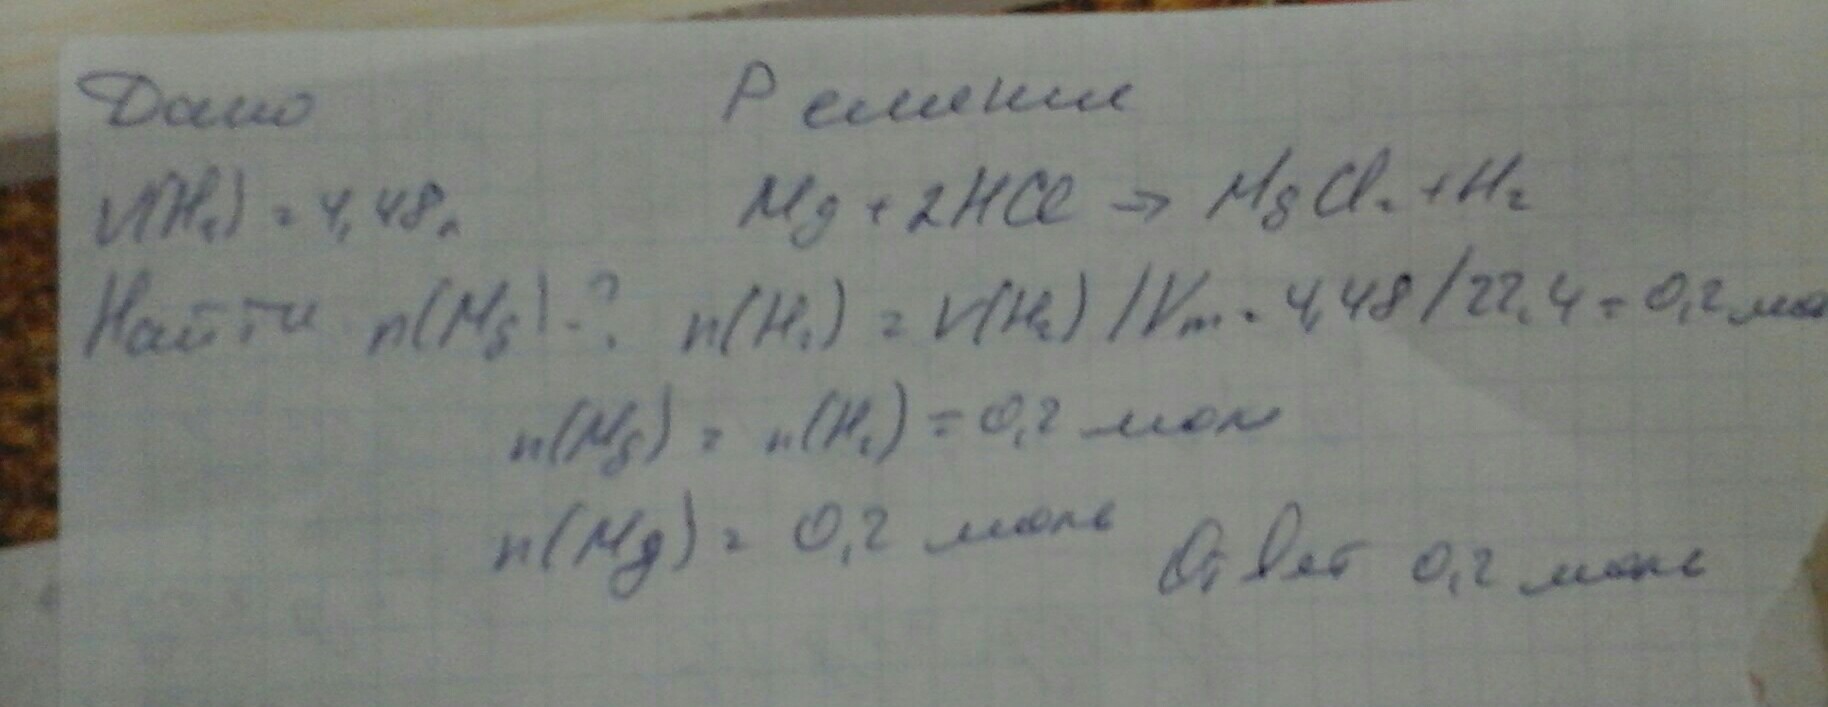 Дано Решение
V(H₂) = 4,48л Mg + 2HCl → MgCl₂ + H₂
Найти n(Mg) - ? n(H₂) = V(H₂) / Vm = 4,48 / 22,4 = 0,2 мол
n(Mg) = n(H₂) = 0,2 моль
n(Mg) = 0,2 моль Ответ 0,2 моль